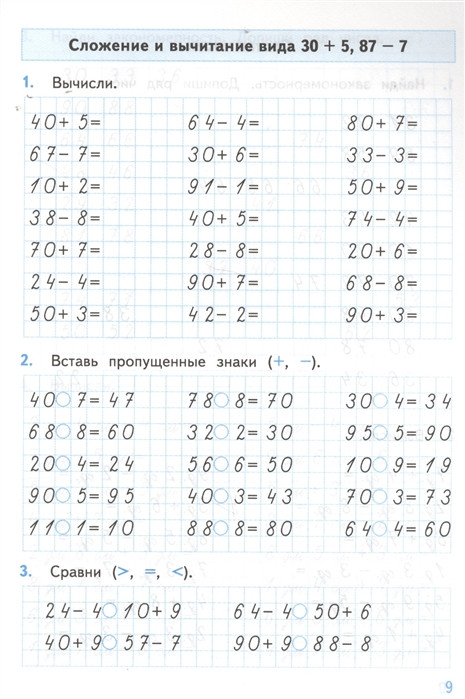 Сложение и вычитание вида 30 + 5, 87 − 7
1. Вычисли.
40 + 5 = 64 − 4 = 80 + 7 =
67 − 7 = 30 + 6 = 33 − 3 =
10 + 2 = 91 − 1 = 50 + 9 =
38 − 8 = 40 + 5 = 74 − 4 =
70 + 7 = 28 − 8 = 20 + 6 =
24 − 4 = 90 + 7 = 68 − 8 =
50 + 3 = 42 − 2 = 90 + 3 =
2. Вставь пропущенные знаки (+, −).
40 ○ 7 = 47 78 ○ 8 = 70 30 ○ 4 = 34
68 ○ 8 = 60 32 ○ 2 = 30 95 ○ 5 = 90
20 ○ 4 = 24 56 ○ 6 = 50 10 ○ 9 = 19
90 ○ 5 = 95 40 ○ 3 = 43 70 ○ 3 = 73
11 ○ 1 = 10 88 ○ 8 = 80 64 ○ 4 = 60
3. Сравни (>, =, <).
24 − 4 ○ 10 + 9 64 − 4 ○ 50 + 6
40 + 9 ○ 57 − 7 90 + 9 ○ 88 − 8
9